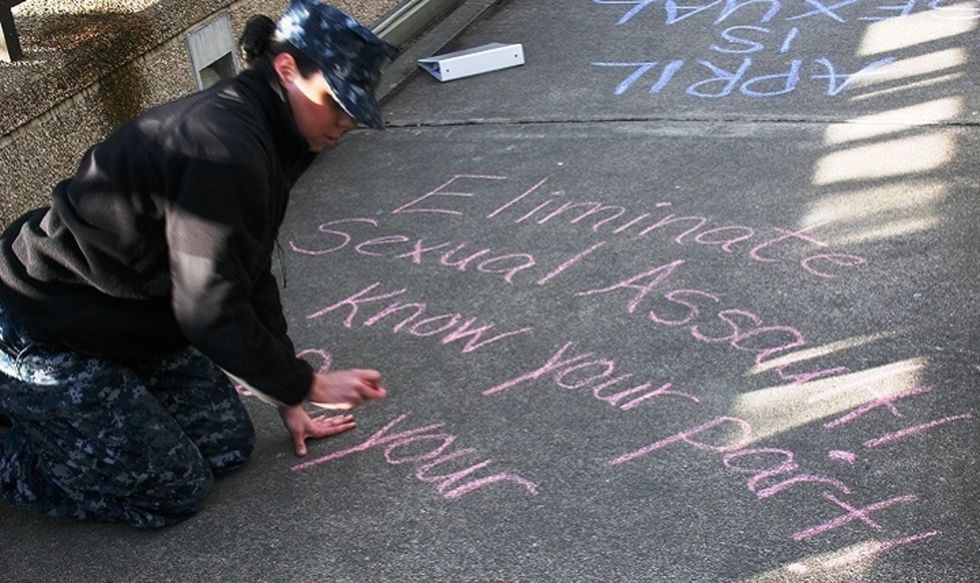 APRIL
IS
SEXUAL
Eliminate
Sexual Assault!
Know your Part!
your